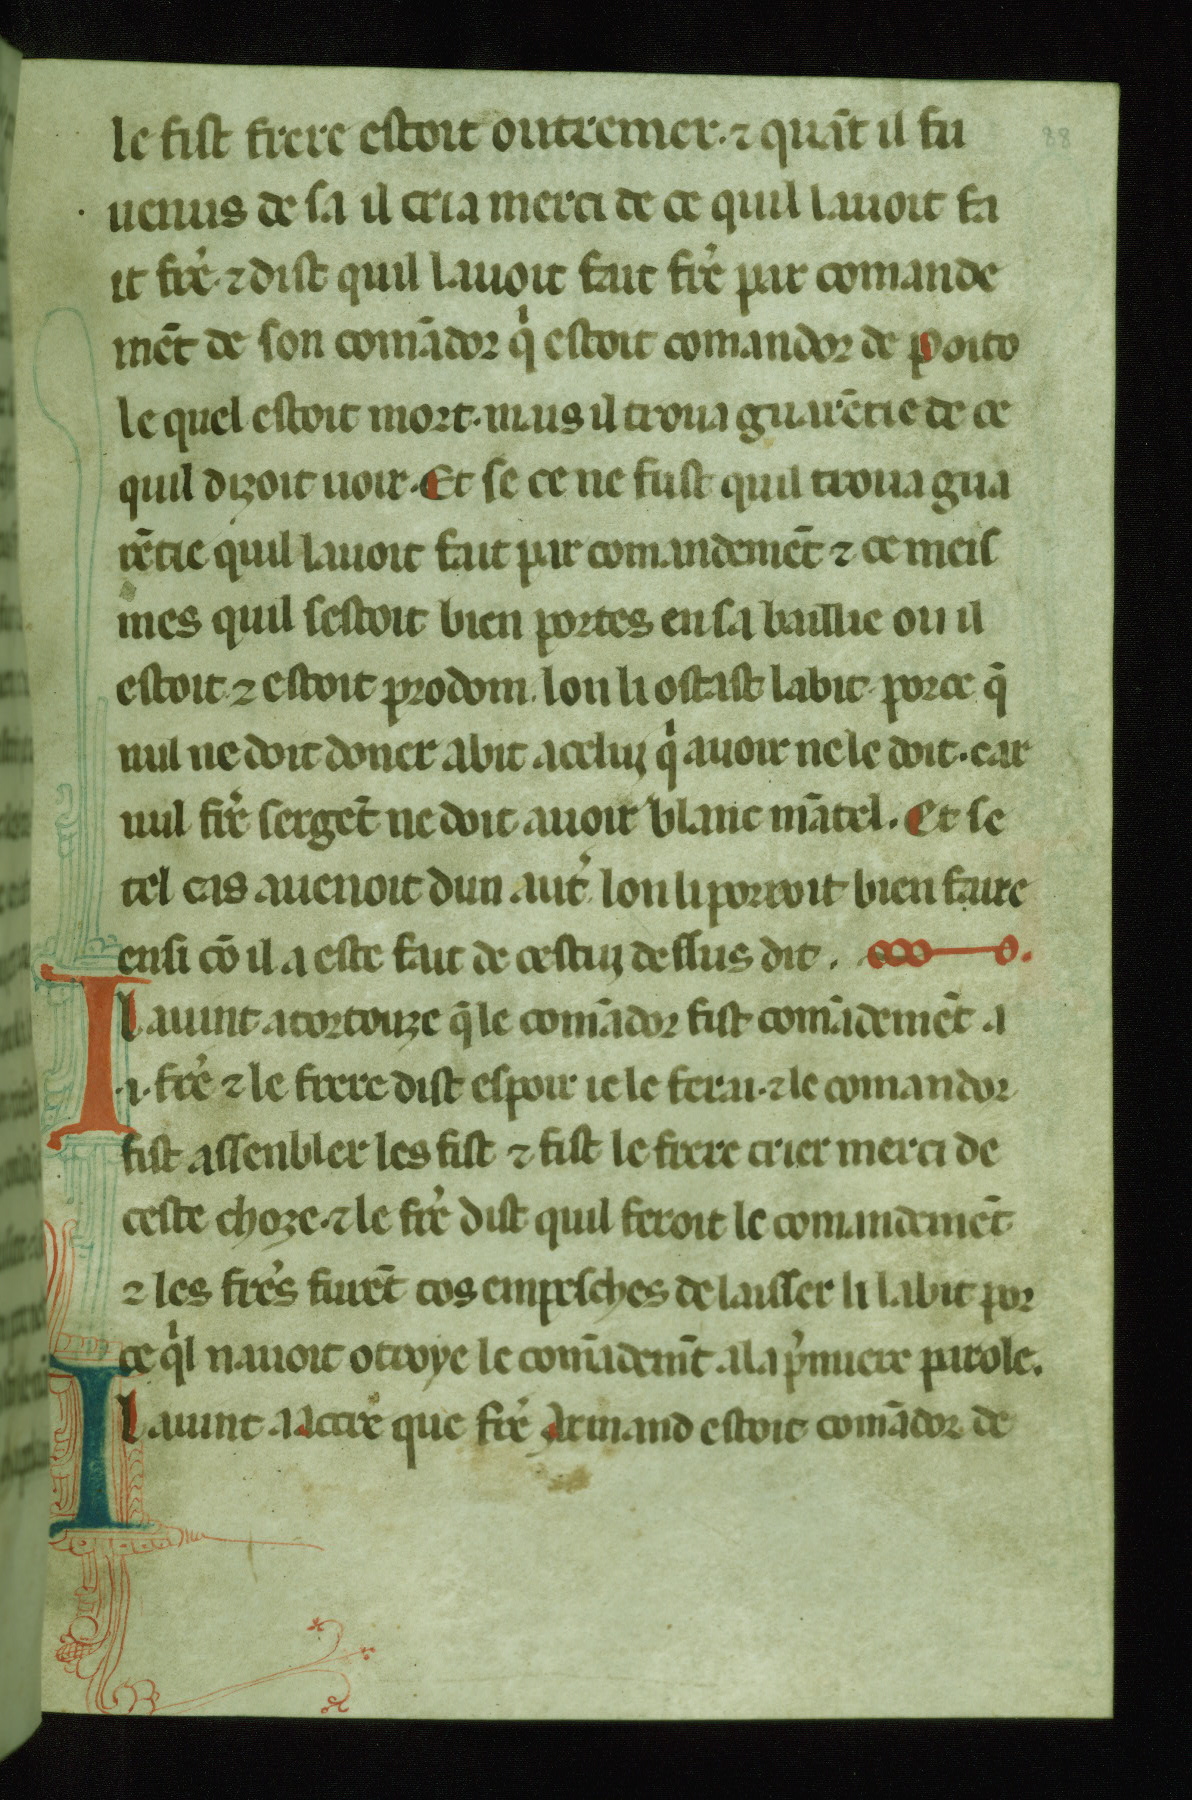 le fist frere estoit outremer. ⁊ quāt il fu
uenus de sa il cria merci de ce quil lauoit fa
it fre̓. ⁊ dist quil lauoit fait fre̓ par comande
mēt de son comādor qͥ estoit comandor de poito
le quel estoit mort. mais il troua guarētie de ce
quil dizoit uoir. Et se ce ne fust quil troua gua
rētie quil lauoit fait par comandemēt ⁊ ce meis
mes quil sestoit bien portes en sa baillie ou il
estoit ⁊ estoit prodom. lon li ostast labit. por ce q̄
nul ne doit doner abit a celuy qͥ auoir ne le doit. car
nul fre̓ sergēt ne doit auoir blanc mātel. Et se
tel cas auenoit dun aut̓. lon li porroit bien faire
ensi cō il a este fait de cestuy dessus dit.
Il auint a tortouze q̄ le comādor fist comādemēt a
.i. fre̓ ⁊ le frere dist espoir ie le ferai. ⁊ le comandor
fist assenbler les fist ⁊ fist le frere crier merci de
ceste choze. ⁊ le fre̓ dist quil feroit le comandemēt
⁊ les fre̓s furēt tos enpresches de laisser li labit por
ce qͥl nauoit otroye le comādemt̄ a la pͥmiere parole.
Il auint a Accre que fre̓ Armand estoit comādor de
88